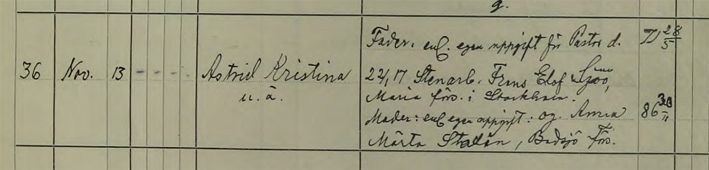 g.
Fader: enl. egen uppgift för Pastor d. 77 28/5
36 Nov. 13 - - - - Astrid Kristina 22/1 17 Stenarb. Frans Elof Sjöö,
u. ä. Maria förs. i Stockholm.
Moder: enl. egen uppgift: og. Anna 86 30/11
Märta Stalin, Badsjö Förs.